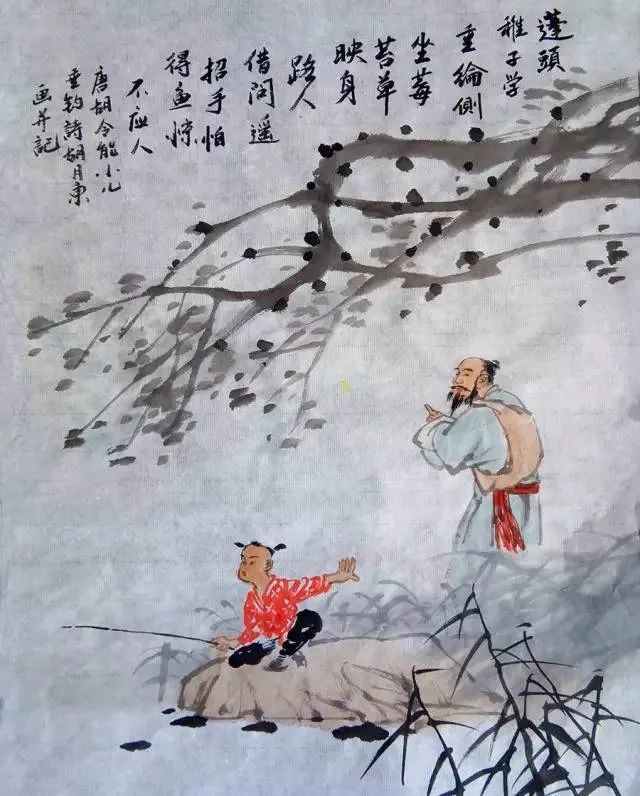 蓬頭
稚子学
垂綸側
坐莓
苔草
映身
路人
借问遥
招手怕
得鱼惊
不应人
唐胡令能小儿
垂钓詩胡月东
画并記